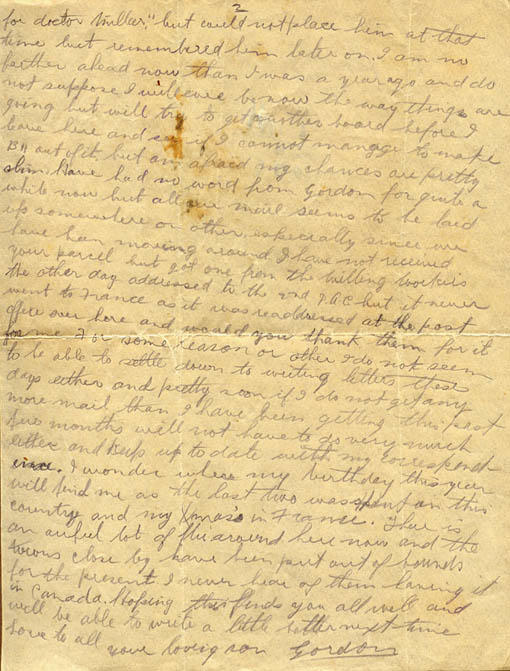 2
for doctor Millar," but could not place him at that
time but remembered him later on. I am no
farther ahead now than I was a year ago and do
not suppose I will ever be now the way things are
going but will try to get another board before I
leave here and see if I cannot manage to make
B11 out of it, but am afraid my chances are pretty
slim. Have had no word from Gordon for quite a
while now but all our mail seems to be laid
up somewhere or other, especially since we
have been moving around. I have not received
your parcel but got one from the willing workers
the other day addressed to the 2nd D.A.C. but it never
went to France as it was readdressed at the post
office over here and would you thank them for it
for me. For some reason or other I do not seem
to be able to settle down to writing letters these
days either and pretty soon if I do not get any
more mail than I have been getting this past
few months will not have to do very much
either and keep up to date with my correspond-
ence. I wonder where my birthday this year
will find me as the last two was spent in this
country and my Xmas's in France. There is
an awful lot of flu around here now and the
towns close by have been put out of bounds
for the present. I never hear of them having it
in Canada. Hoping this finds you all well and
will be able to write a little better next time
love to all
your loving son Gordon